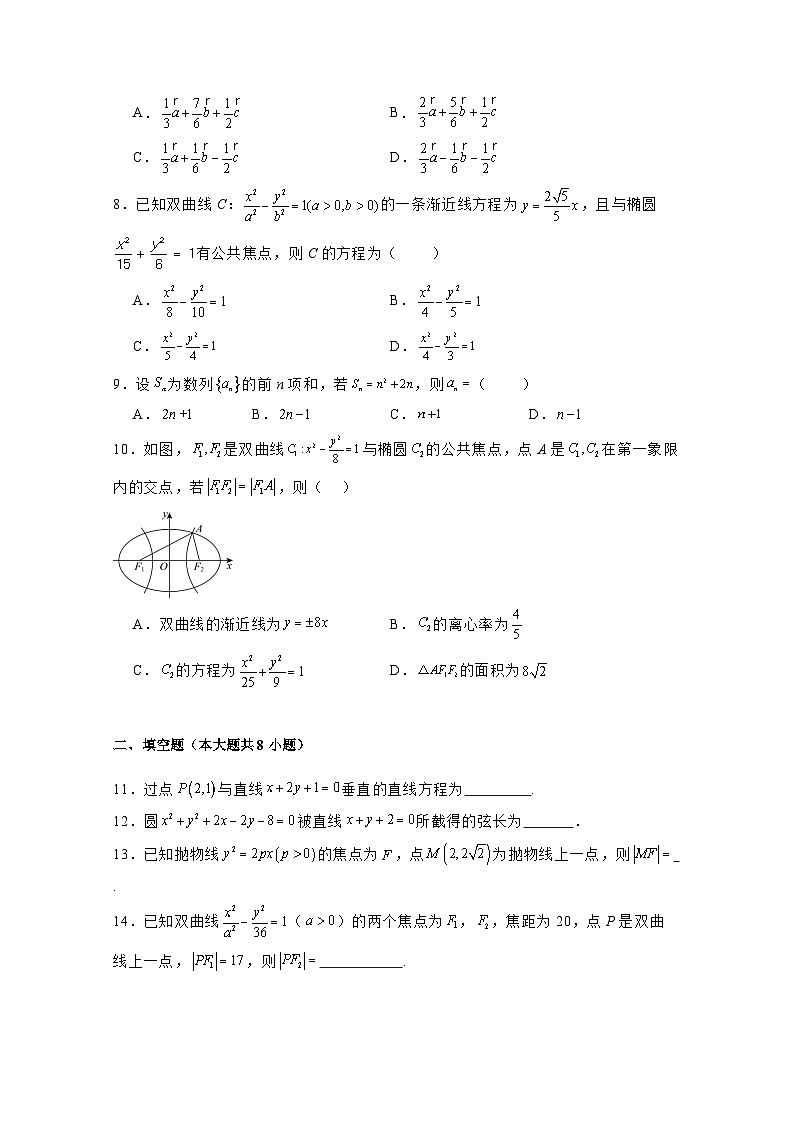 A. \frac{1}{3}\vec{a}+\frac{7}{6}\vec{b}+\frac{1}{2}\vec{c} B. \frac{2}{3}\vec{a}+\frac{5}{6}\vec{b}+\frac{1}{2}\vec{c}
C. \frac{1}{3}\vec{a}+\frac{1}{6}\vec{b}-\frac{1}{2}\vec{c} D. \frac{2}{3}\vec{a}-\frac{1}{6}\vec{b}-\frac{1}{2}\vec{c}
8.已知双曲线 C: \frac{x^2}{a^2}-\frac{y^2}{b^2}=1(a>0,b>0)的一条渐近线方程为 y=\frac{2\sqrt{5}}{5}x,且与椭圆
\frac{x^2}{15}+\frac{y^2}{6}=1有公共焦点,则 C 的方程为( )
A. \frac{x^2}{8}-\frac{y^2}{10}=1 B. \frac{x^2}{4}-\frac{y^2}{5}=1
C. \frac{x^2}{5}-\frac{y^2}{4}=1 D. \frac{x^2}{4}-\frac{y^2}{3}=1
9.设 S_n 为数列{a_n}的前 n 项和,若 S_n=n^2+2n,则 a_n=( )
A. 2n+1 B. 2n-1 C. n+1 D. n-1
10.如图,F_1,F_2 是双曲线 C_1:x^2-\frac{y^2}{8}=1 与椭圆 C_2 的公共焦点,点 A 是 C_1,C_2 在第一象限
内的交点,若|F_1F_2|=|F_1A|,则( )
y
A
F_1 O F_2 x
A.双曲线的渐近线为 y=±8x B. C_2 的离心率为 \frac{4}{5}
C. C_2 的方程为 \frac{x^2}{25}+\frac{y^2}{9}=1 D. △AF_1F_2 的面积为 8\sqrt{2}
二、填空题(本大题共 8 小题)
11.过点 P(2,1)与直线 x+2y+1=0 垂直的直线方程为________.
12.圆 x^2+y^2+2x-2y-8=0 被直线 x+y+2=0 所截得的弦长为______.
13.已知抛物线 y^2=2px(p>0)的焦点为 F,点 M(2,2\sqrt{2})为抛物线上一点,则|MF|=_
.
14.已知双曲线 \frac{x^2}{a^2}-\frac{y^2}{36}=1(a>0)的两个焦点为 F_1,F_2,焦距为 20,点 P 是双曲
线上一点,|PF_1|=17,则|PF_2|=__________.